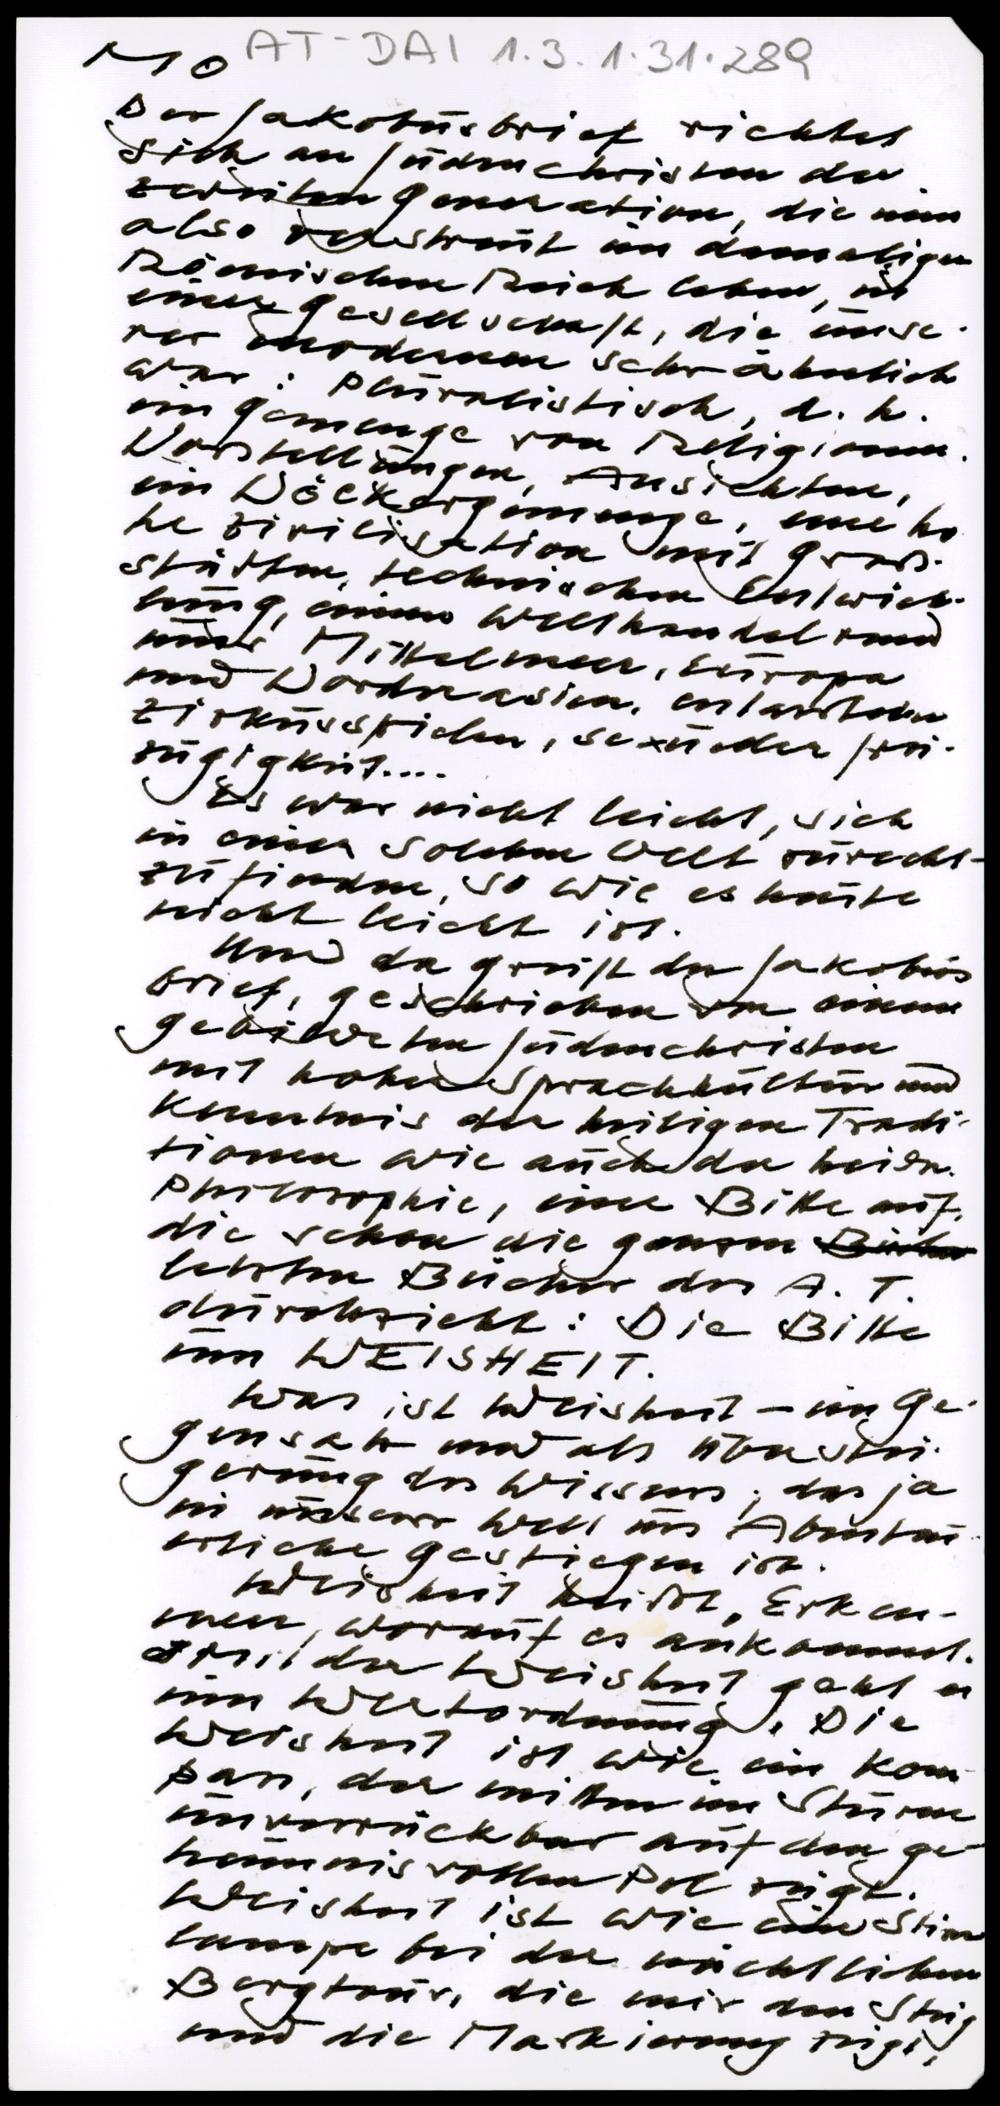 MO AT-DAI 1.3.1.31.289
Der Jakobusbrief richtet
sich an Judenchristen der
zweiten Generation, die nun
also verstreut im damaligen
Römischen Reich leben, in
einer Gesellschaft, die unse-
rer modernen sehr ähnlich
war: pluralistisch, d. h.
ein Gemenge von Religionen.
Vorstellungen, Ansichten,
ein Völkergemenge, eine ho
he Zivilisation mit Groß-
städten, technischen Entwick-
lung, einem Welthandel rund
ums Mittelmeer, Europa
und Vorderasien, entarteten
Zirkusspielen, sexueller Frei-
zügigkeit....
Es war nicht leicht, sich
in einer solchen Welt zurecht-
zufinden, so wie es heute
nicht leicht ist.
Und da greift der Jakobus
brief, geschrieben von einem
gebildeten Judenchristen
mit hoher Sprachkultur und
Kenntnis der heiligen Tradi-
tionen wie auch der heidn.
Philosophie, eine Bitte auf,
die schon die ganzen
letzten Bücher des A. T.
durchzieht: Die Bitte
um WEISHEIT.
Was ist Weisheit – im Ge-
gensatz und als Überstei-
gerung des Wissens, das ja
in unserer Welt ins Abenteu-
erliche gestiegen ist.
Weisheit heißt, Erken-
nen, worauf es ankommt.
Mit der Weisheit geht es
um Wertordnung. Die
Weisheit ist wie ein Kom-
pass, der mitten im Sturm
unverrückbar auf den ge-
heimnisvollen Pol zeigt.
Weisheit ist wie eine Stirn
lampe bei der nächtlichen
Bergtour, die mir den Steig
und die Markierung zeigt,